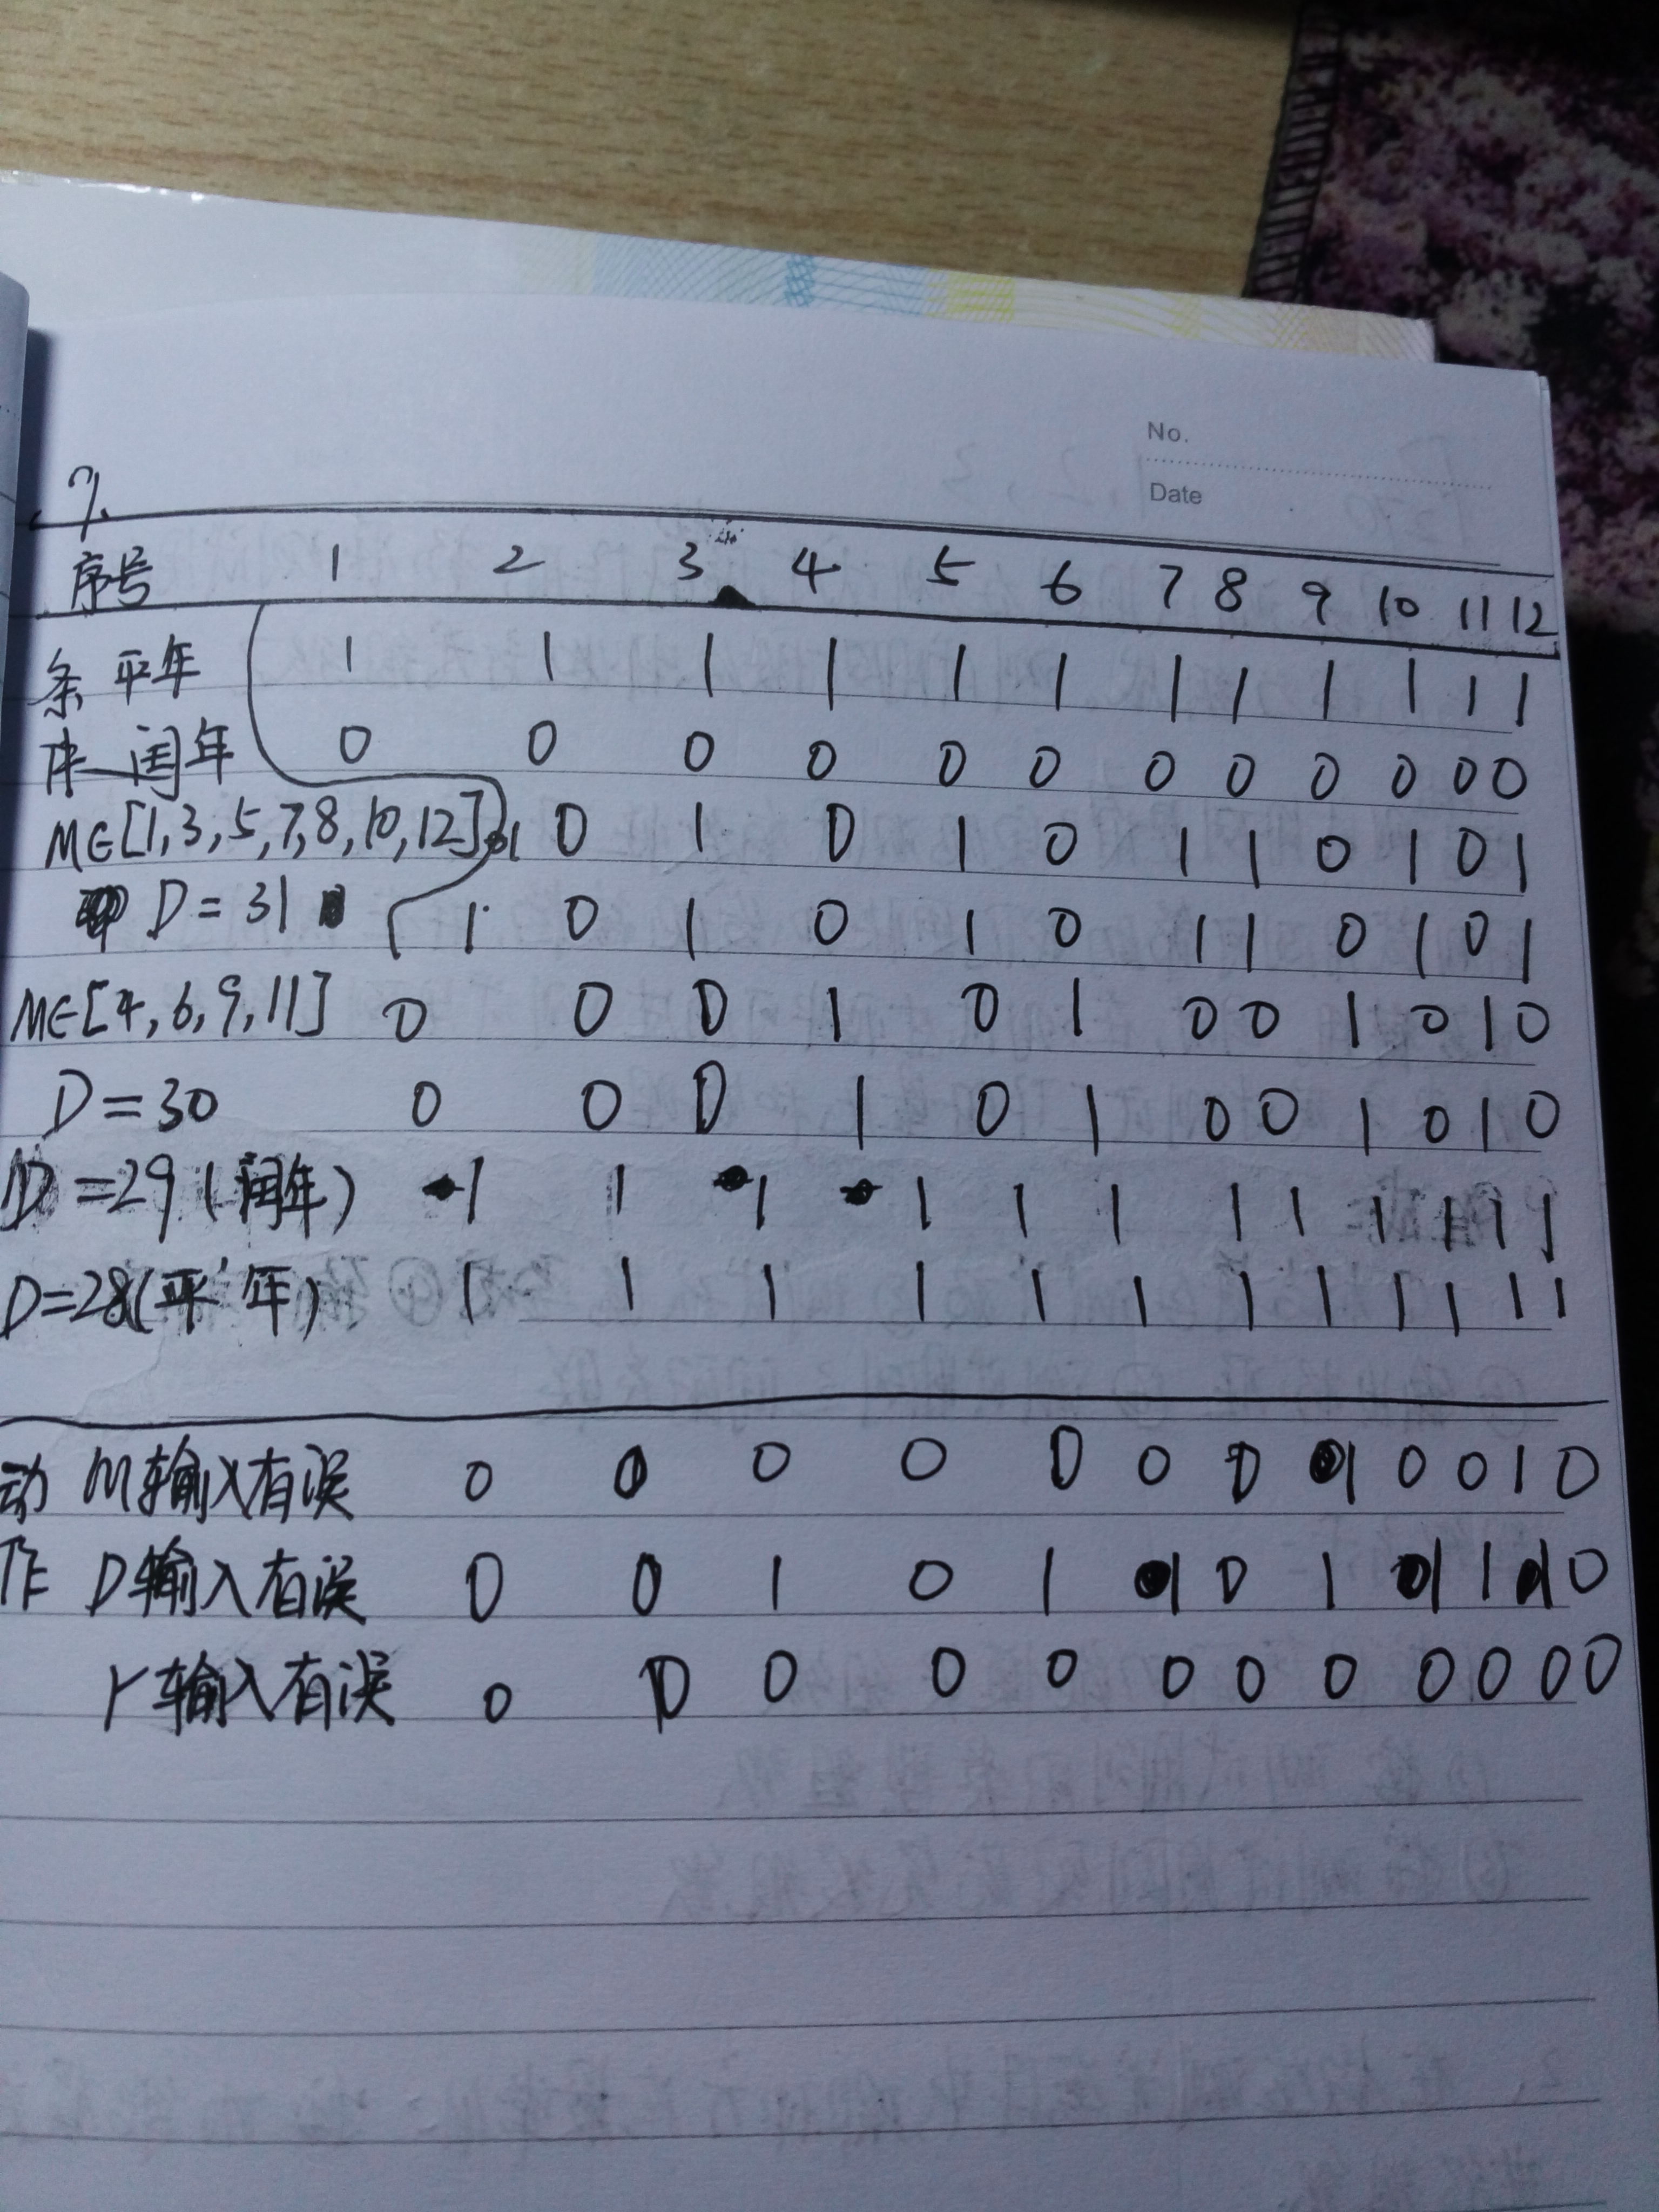 No.
Date
7.
序号 1 2 3 4 5 6 7 8 9 10 11 12
条 平年 1 1 1 1 1 1 1 1 1 1 1 1
件 闰年 0 0 0 0 0 0 0 0 0 0 0 0
M∈[1,3,5,7,8,10,12] 1 0 1 0 1 0 1 1 0 1 0 1
D=31 1 0 1 0 1 0 1 1 0 1 0 1
M∈[4,6,9,11] 0 0 0 1 0 1 0 0 1 0 1 0
D=30 0 0 0 1 0 1 0 0 1 0 1 0
D=29(闰年) 1 1 1 1 1 1 1 1 1 1 1 1
D=28(平年) 1 1 1 1 1 1 1 1 1 1 1
动 M输入有误 0 0 0 0 0 0 0 1 0 0 1 0
作 D输入有误 0 0 1 0 1 1 0 1 1 1 1 0
Y输入有误 0 0 0 0 0 0 0 0 0 0 0 0